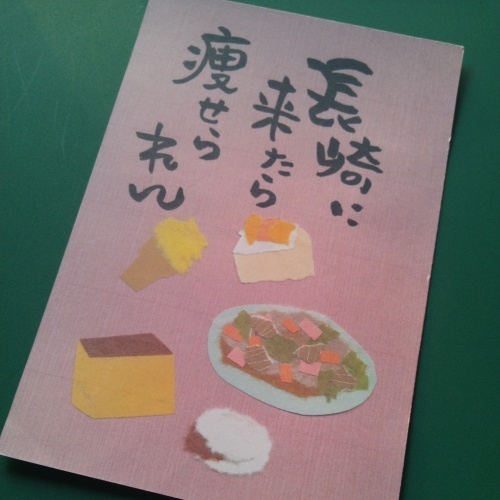 長崎に
来たら
痩せら
れん